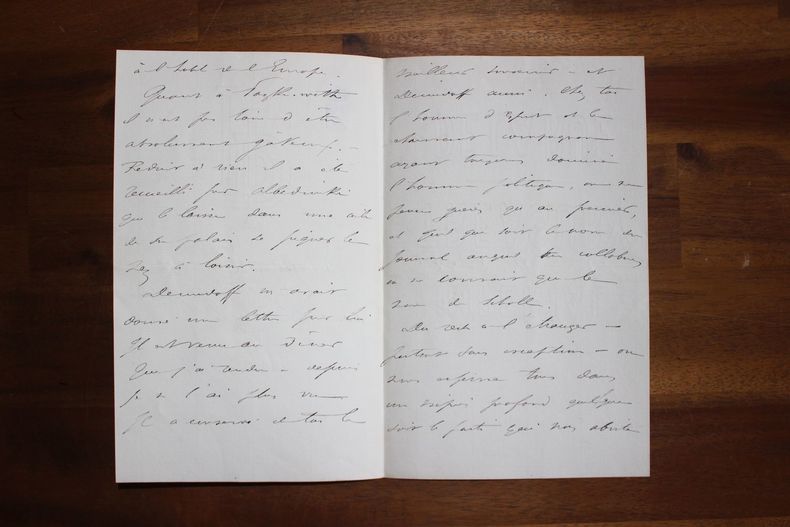 à l'hôtel de l'Europe.
Quant à
il n'est pas loin d'être
absolument gâteux. -
Réduit à rien il a été
recueilli par Albedinski
qui le laisse dans une aile
de son palais se piquer le
nez à loisir.
Demidoff m'avait
donné une lettre pour lui
Il est venu au dîner
que j'ai rendu - depuis
je ne l'ai plus vu
Il a conservé de toi le
meilleur souvenir - et
Demidoff aussi. Chez toi
l'homme d'esprit et le
charmant compagnon
ayant toujours dominé
l'homme politique, on ne
pense guères qu'au premier,
et quel que soit le nom du
journal auquel tu collabores,
on ne connaît que le
nom de Scholl.
Du reste à l'étranger -
partout sans exception - on
nous enferme tous dans
un mépris profond quelque
soit le parti qui nous abrite